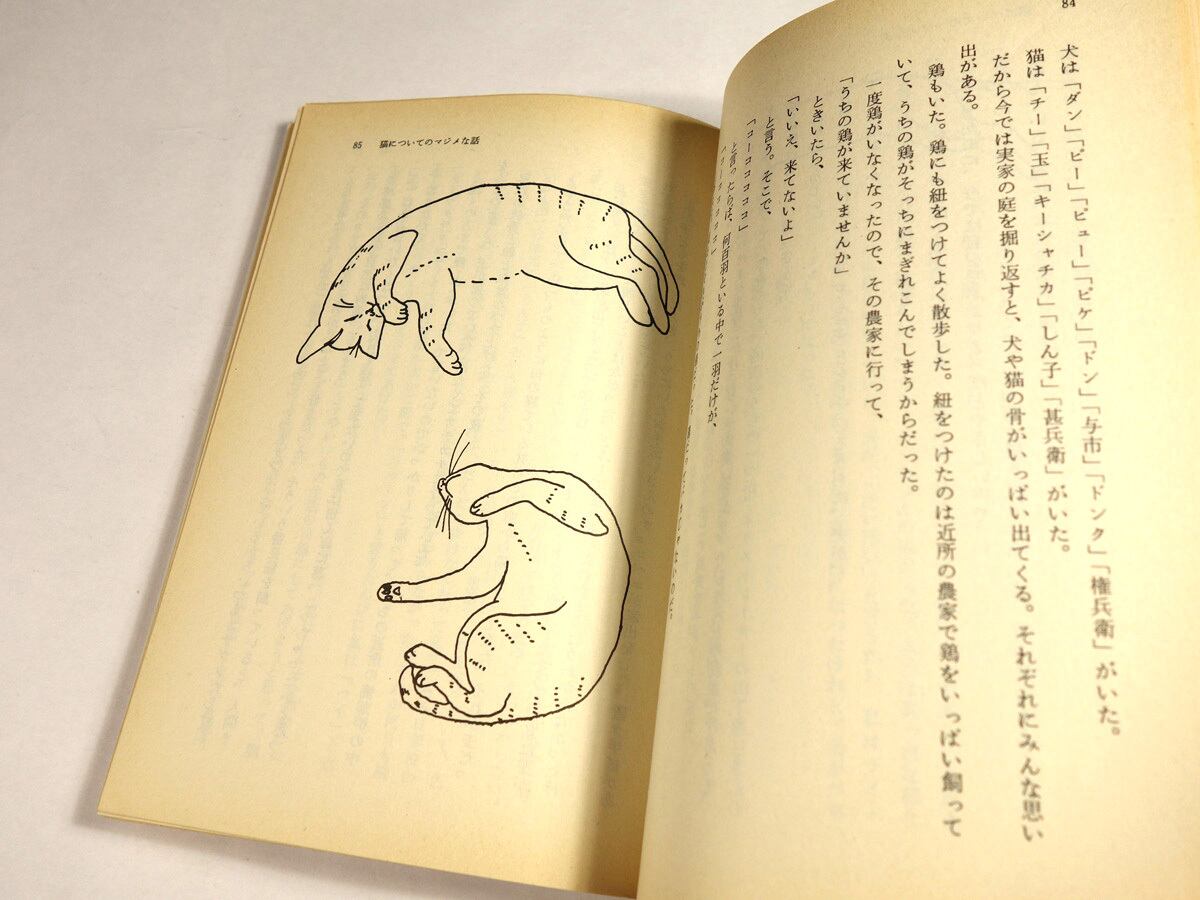 84
犬は「ダン」「ビー」「ピュー」「ピケ」「ドン」「与市」「ドンク」「権兵衛」がいた。
猫は「チー」「玉」「キーシャチカ」「しん子」「甚兵衛」がいた。
だから今では実家の庭を掘り返すと、犬や猫の骨がいっぱい出てくる。それぞれにみんな思い
出がある。
鶏もいた。鶏にも紐をつけてよく散歩した。紐をつけたのは近所の農家で鶏をいっぱい飼って
いて、うちの鶏がそっちにまぎれこんでしまうからだった。
一度鶏がいなくなったので、その農家に行って、
「うちの鶏が来ていませんか」
ときいたら、
「いいえ、来てないよ」
と言う。そこで、
「コーココココココ」
と言ったらば、何百羽といる中で一羽だけが、
85 猫についてのマジメな話